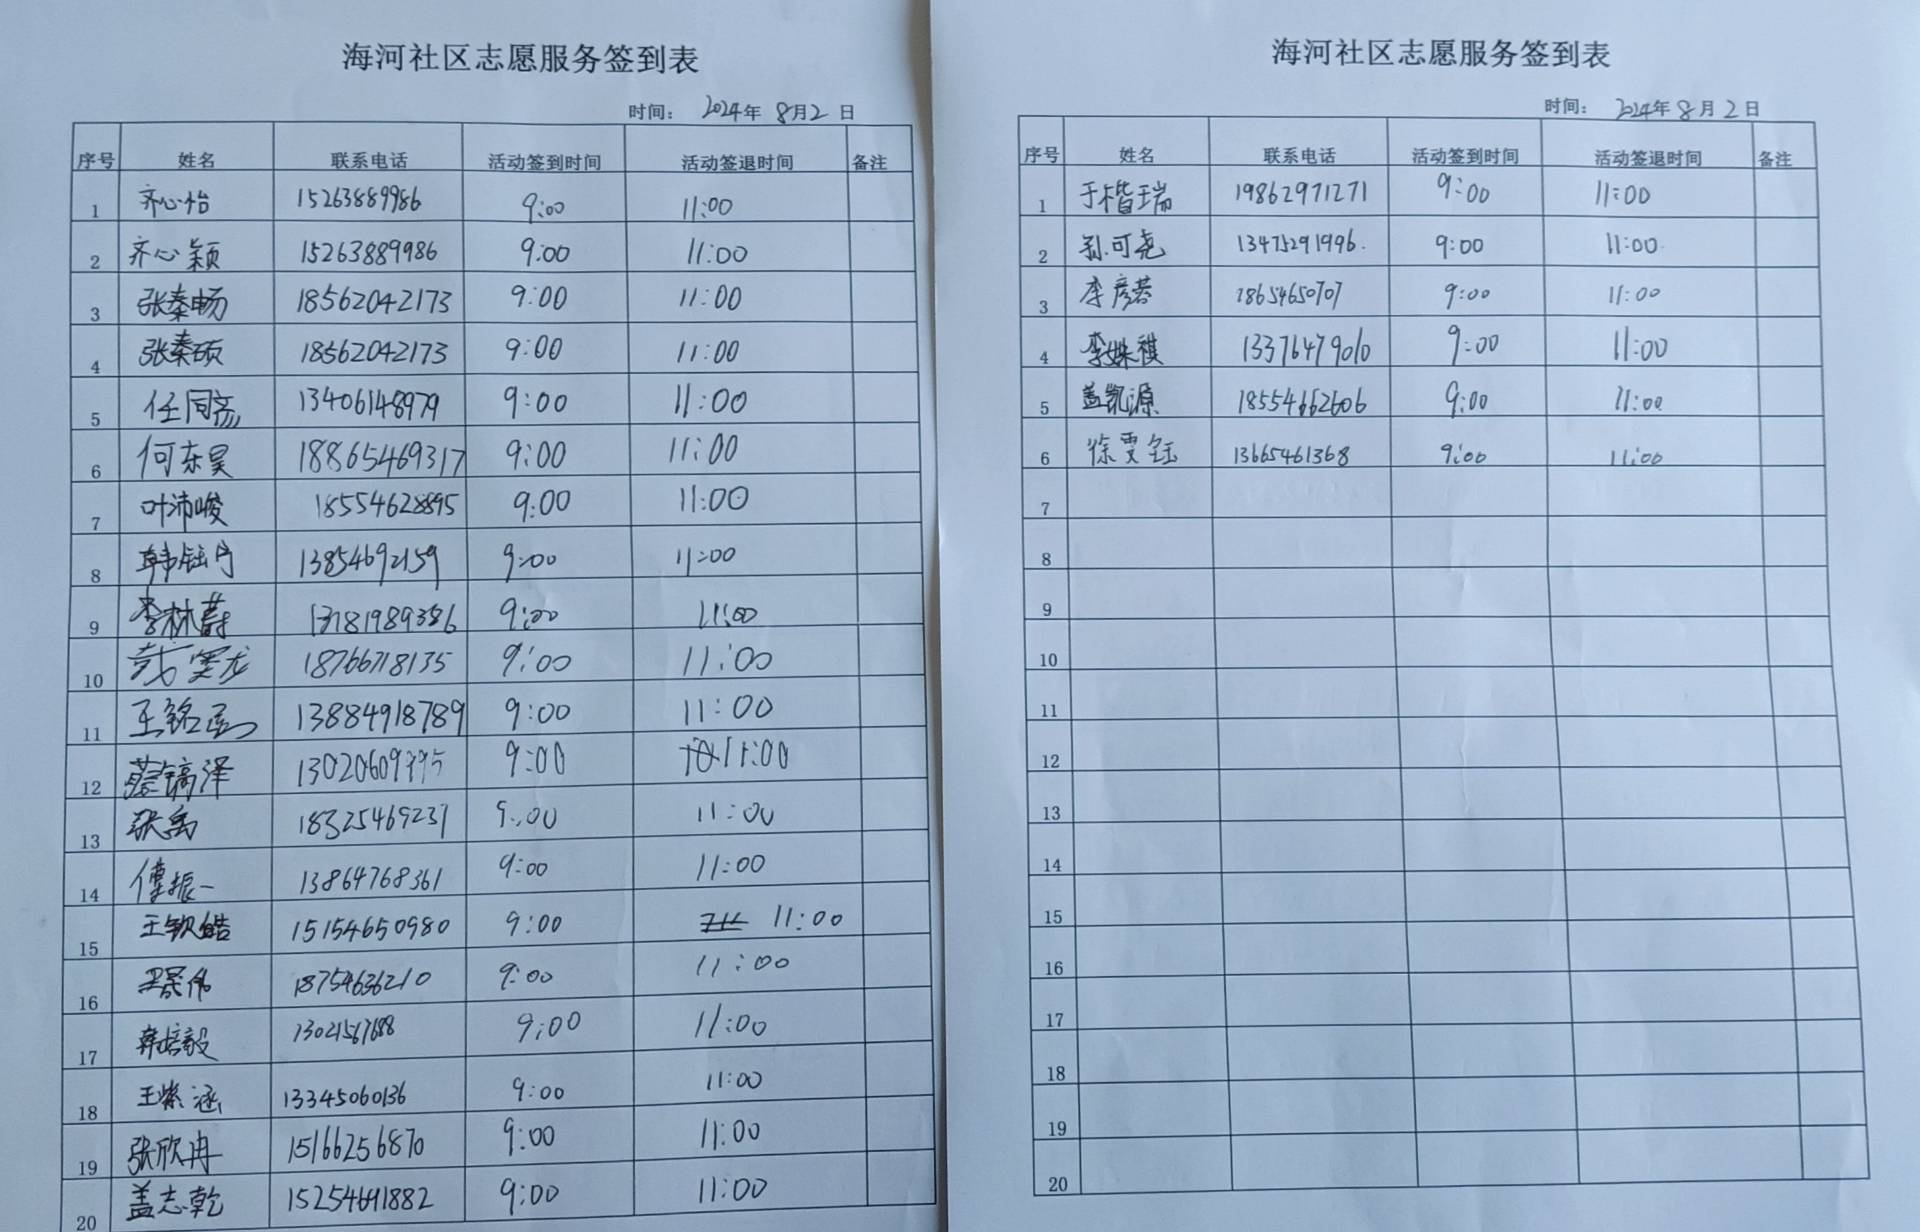 海河社区志愿服务签到表
时间： 2024年 8月2 日
序号 姓名 联系电话 活动签到时间 活动签退时间 备注
1 齐心怡 15263889986 9:00 11:00
2 齐心颖 15263889986 9:00 11:00
3 张秦畅 18562042173 9:00 11:00
4 张秦硕 18562042173 9:00 11:00
5 任同彦 13406148979 9:00 11:00
6 何东昊 18865469317 9:00 11:00
7 叶沛峻 18554628895 9:00 11:00
8 韩钰丹 13854692159 9:00 11:00
9 李林蔚 13181989386 9:00 11:00
10 18766718135 9:00 11:00
11 王铭 13884918789 9:00 11:00
12 蔡镐泽 13020609995 9:00 11:00
13 张禹 18325469237 9:00 11:00
14 傅振一 13864768361 9:00 11:00
15 王钦皓 15154650980 9:00 11:00
16 18754636210 9:00 11:00
17 韩培毅 13021567688 9:00 11:00
18 王紫涵 13345060136 9:00 11:00
19 张欣冉 15166256870 9:00 11:00
20 盖志乾 15254691882 9:00 11:00
海河社区志愿服务签到表
时间： 2024年 8月 2 日
序号 姓名 联系电话 活动签到时间 活动签退时间 备注
1 于楷瑞 19862971271 9:00 11:00
2 孙可尧 13475291996. 9:00 11:00
3 李彦蓉 18654650707 9:00 11:00
4 李姝祺 13376479010 9:00 11:00
5 盖凯源 18554662606 9:00 11:00
6 徐雯钰 13665461368 9:00 11:00
7
8
9
10
11
12
13
14
15
16
17
18
19
20